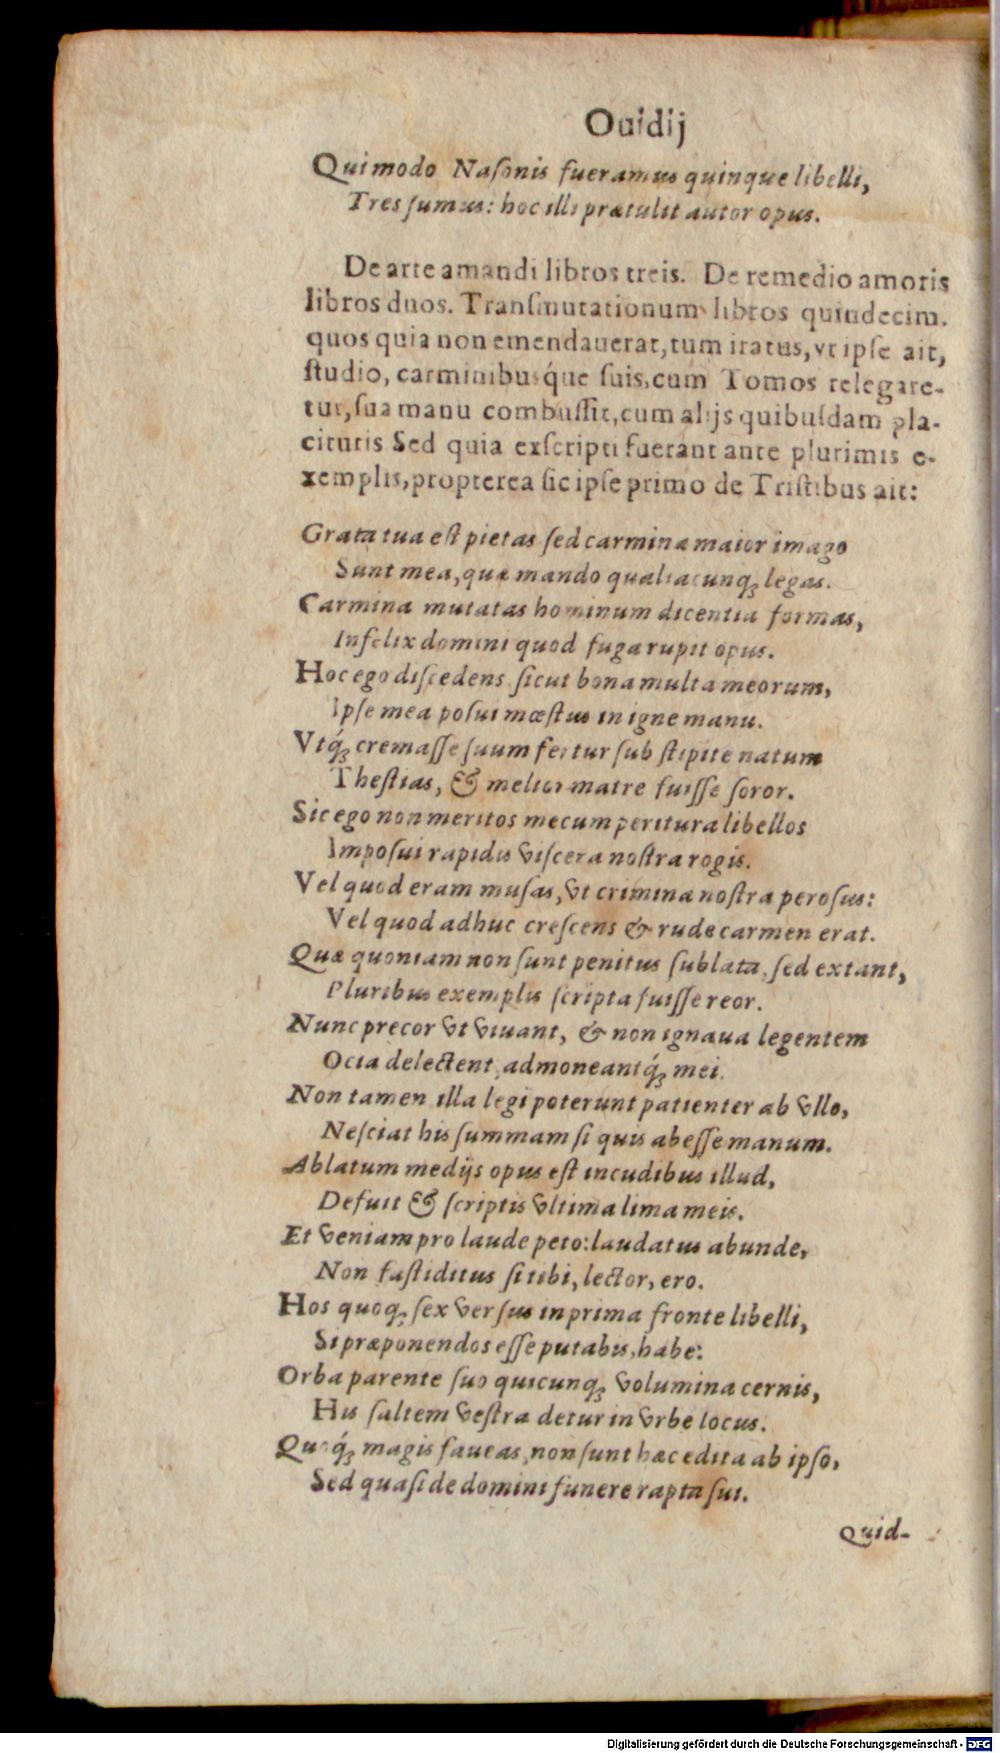 Ouidij
Qui modo Naſonis fueramus quinque libelli,
Tres ſumus: hoc illi prætulit autor opus.
De arte amandi libros treis. De remedio amoris
libros duos. Tranſmutationum libros quindecim.
quos quia non emendauerat, tum iratus, vt ipſe ait,
ſtudio, carminibusq́ue ſuis, cum Tomos relegare-
tur, ſua manu combuſſit, cum alijs quibuſdam pla-
cituris Sed quia exſcripti fuerant ante plurimis e-
xemplis, propterea ſic ipſe primo de Triſtibus ait:
Grata tua eſt pietas ſed carmina maior imago
Sunt mea, quæ mando qualiacunq; legas.
Carmina mutatas hominum dicentia formas,
Infelix domini quod fuga rupit opus.
Hoc ego diſcedens ſicut bona multa meorum,
Ipſe mea poſui mœſtus in igne manu.
Vtq́; cremaſſe ſuum fertur ſub ſtipite natum
Theſtias, & melior matre fuiſſe ſoror.
Sic ego non meritos mecum peritura libellos
Impoſui rapidis viſcera noſtra rogis.
Vel quod eram muſas, vt crimina noſtra peroſus:
Vel quod adhuc creſcens & rude carmen erat.
Quæ quoniam non ſunt penitus ſublata, ſed extant,
Pluribus exemplis ſcripta fuiſſe reor.
Nunc precor vt viuant, & non ignaua legentem
Ocia delectent, admoneantq́; mei.
Non tamen illa legi poterunt patienter ab vllo,
Neſciat his ſummam ſi quis abeſſe manum.
Ablatum medijs opus eſt incudibus illud,
Defuit & ſcriptis vltima lima meis.
Et veniam pro laude peto: laudatus abunde,
Non faſtiditus ſi tibi, lector, ero.
Hos quoq; ſex verſus in prima fronte libelli,
Si præponendos eſſe putabis, habe:
Orba parente ſuo quicunq; volumina cernis,
His ſaltem veſtra detur in vrbe locus.
Quoq́; magis faueas, non ſunt hæc edita ab ipſo,
Sed quaſi de domini funere rapta ſui.
Quid-
Digitalisierung gefördert durch die Deutsche Forschungsgemeinschaft - DFG